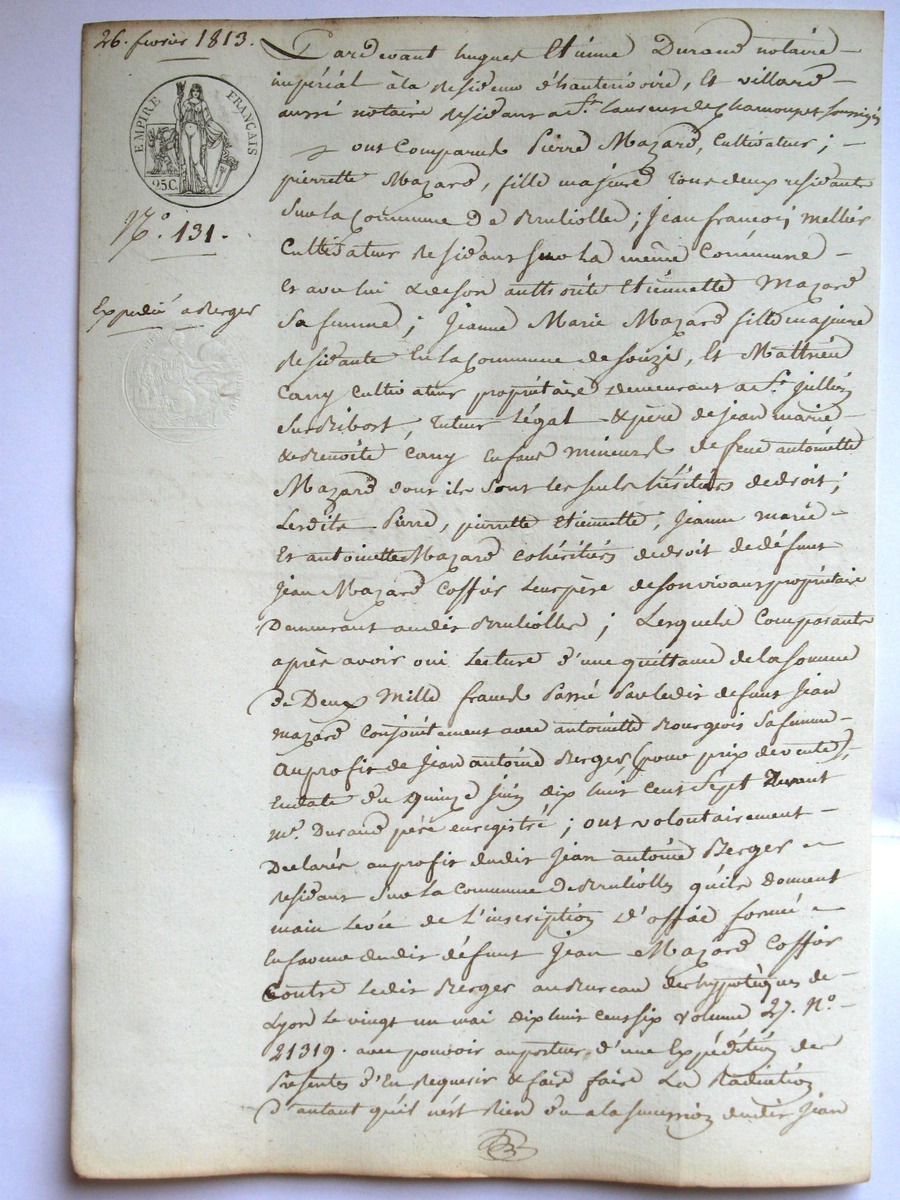 26. fevrier 1813.
EMPIRE FRANÇAIS
25 C.
N.º 131.
Expedié a Berger
Pardevant hugues Etienne Durand notaire
impérial à la residence d'hauterivoire, Et villard
aussi notaire residant a St. Laurent de Chamousset soussignés
ont Comparus Pierre Mazard, Cultivateur;
pierrette Mazard, fille majeure tous deux residants
Sur la Commune de Brulliolle; Jean françois mellier
Cultivateur residant sur la même Commune
Et avec lui & de son authorité Etiennette Mazard
Sa femme; Jeanne Marie Mazard fille majeure
residante En la Commune de Souzi, Et Mathieu
Carry Cultivateur propriétaire demeurant a St.
Tuteur Légal & père de jean marie
& Benoite Carry Enfans mineurs de feue antoinette
Mazard dont ils Sont les seuls héritiers de droit;
Lesdits Pierre, pierrette Etiennette, Jeanne marie
Et antoinette Mazard Cohéritiers de droit de défunt
Jean Mazard Coffir Leur père de son vivant propriétaire
Demeurant audit Brulliolles; Lesquels Comparants
après avoir oui Lecture d'une quittance de la somme
de Deux Mille francs Passé Par ledit defunt Jean
mazard Conjointement avec antoinette Bourgeois Sa femme
Au profit de Jean antoine Berger (pour prix de vente),
En date du quinze juin dix huit cent Sept Devant
Me. Durand père enregistré; ont volontairement
Declarés au profit dudit Jean antoine Berger
residant Sur la Commune de Brulliolles qu'ils donnent
main Levée de L'inscription d'office formée
En faveur dudit défunt Jean Mazard Coffir
Contre Ledit Berger au Bureau des hypotèques de
Lyon Le vingt un mai dix huit cent six volume 27. N.º
21319. avec pouvoir au porteur d'une Expédition des
Présentes d'En Requerir & faire faire La Radiation
d'autant qu'il n'est Rien du a la succession dudit Jean